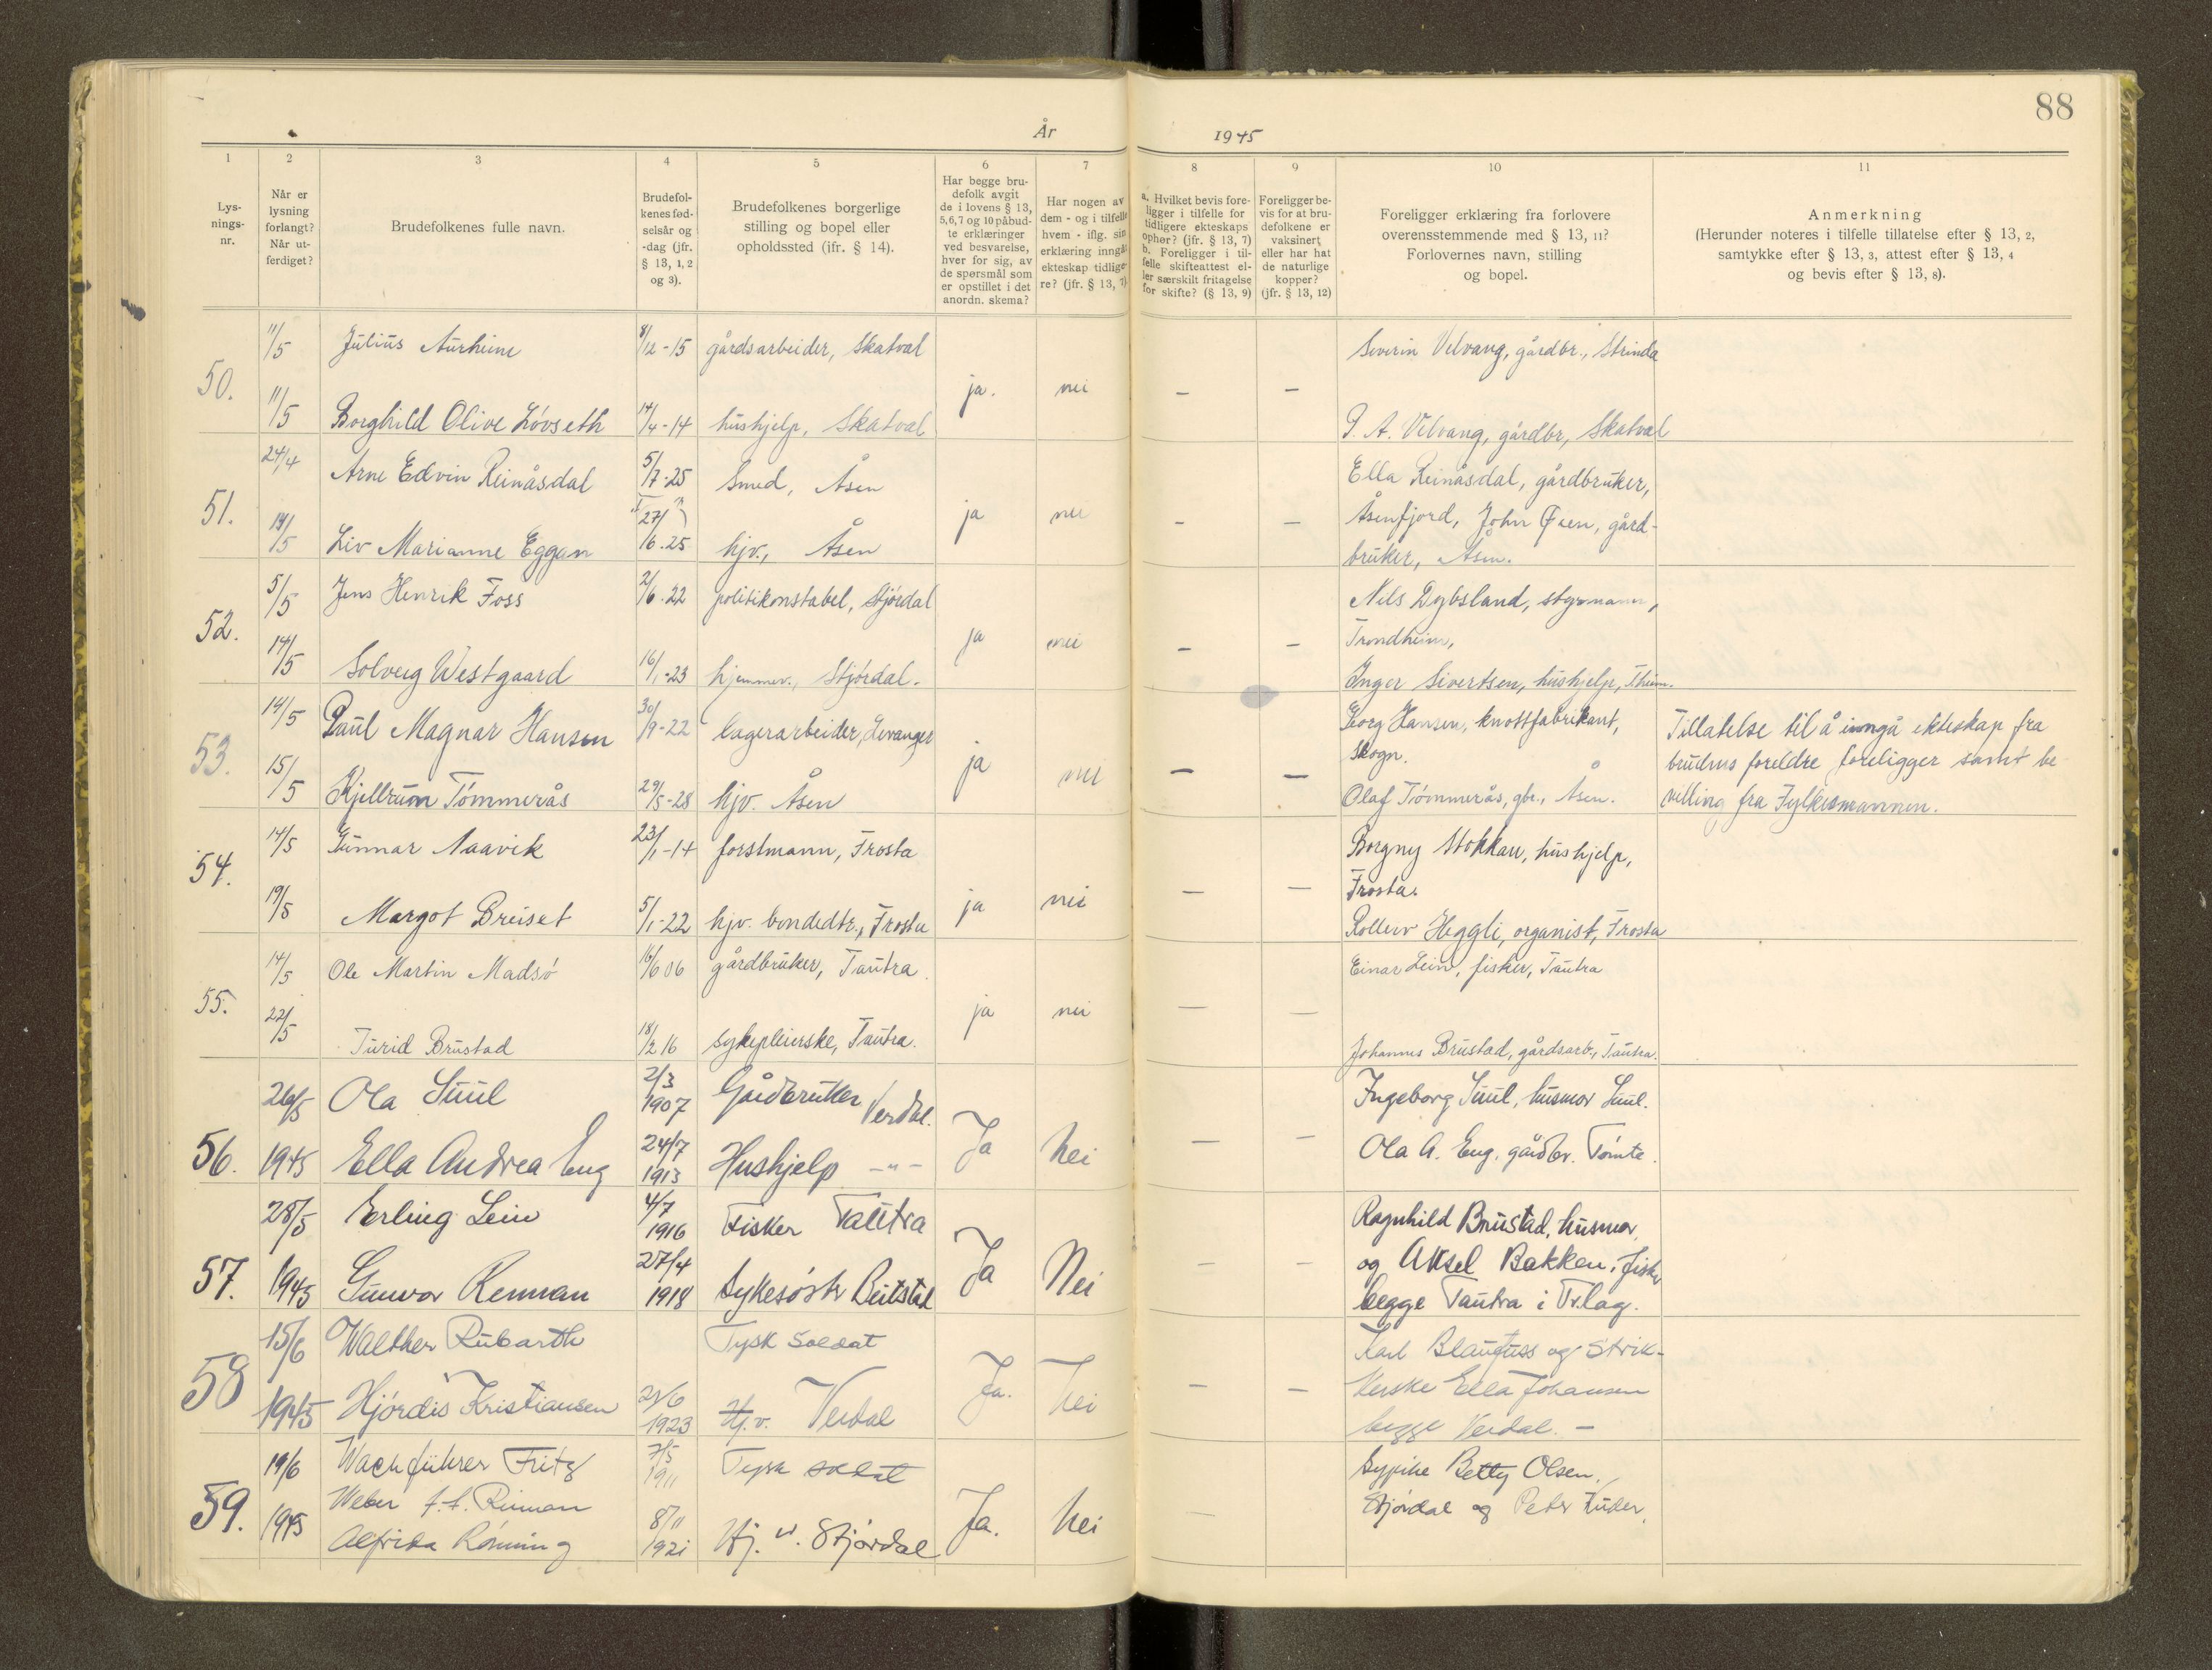 88
År 1945
1 2 3 4 5 6 7 8 9 10 11
Lysnings-nr.
Når er lysning forlangt? Når utferdiget?
Brudefolkenes fulle navn.
Brudefolkenes fødselsår og -dag (jfr. § 13, 1, 2 og 3).
Brudefolkenes borgerlige stilling og bopel eller opholdssted (jfr. § 14).
Har begge brudefolk avgit de i lovens § 13, 5,6,7 og 10 påbudte erklæringer ved besvarelse, hver for sig, av de spørsmål som er opstillet i det anordn. skema?
Har nogen av dem - og i tilfelle hvem - iflg. sin erklæring inngått ekteskap tidligere? (jfr. § 13, 7)
a. Hvilket bevis foreligger i tilfelle for tidligere ekteskaps ophør? (jfr. § 13, 7) b. Foreligger i tilfelle skifteattest eller særskilt fritagelse for skifte? (§ 13, 9)
Foreligger bevis for at brudefolkene er vaksinert eller har hat de naturlige kopper? (jfr. § 13, 12)
Foreligger erklæring fra forlovere overensstemmende med § 13, 11? Forlovernes navn, stilling og bopel.
Anmerkning (Herunder noteres i tilfelle tillatelse efter § 13, 2, samtykke efter § 13, 3, attest efter § 13, 4 og bevis efter § 13, 8).
11/5 Julius Aurheim 8/12-15 gårdsarbeider, Skatval Severin Velvang, gårdbr., Strinda
50. ja. nei - -
11/5 Borghild Olive Løvseth 14/4-14 hushjelp, Skatval P. A. Velvang, gårdbr, Skatval
24/4 Arne Edvin Reinåsdal 5/7-25 Smed, Åsen Ella Reinåsdal, gårdbruker,
51. ja nei - - Åsenfjord, John Øien, gård-
14/5 Liv Marianne Eggan 27/6.25 hjv., Åsen bruker, Åsen.
5/5 Jens Henrik Foss 2/6.22 politikonstabel, Stjørdal Nils Dybsland, styrmann,
52. ja nei - - Trondheim,
14/5 Solveig Westgaard 16/1-23 hjemmev., Stjørdal. Inger Sivertsen, hushjelp, Thm.
14/5 Paul Magnar Hansen 30/9-22 lagerarbeider, Levanger Georg Hansen, knottfabrikant, Tillatelse til å inngå ekteskap fra
53. ja nei - - Skogn. brudens foreldre foreligger samt be-
15/5 Kjellrun Tømmerås 29/5-28 hjv. Åsen Olaf Tømmerås, gbr., Åsen. villing fra Fylkesmannen.
14/5 Gunnar Naavik 23/1-14 forstmann, Frosta Borgny Stokkan, hushjelp,
54. ja nei - - Frosta.
19/5 Margot Breiset 5/1-22 hjv. bondedtr., Frosta Rolleiv Heggli, organist, Frosta
14/5 Ole Martin Madsø 16/6 06 gårdbruker, Tautra. Einar Lein, fisker, Tautra
55. ja nei - -
22/5 Turid Brustad 18/2 16 sykepleierske, Tautra. Johannes Brustad, gårdsarb., Tautra.
26/5 Ola Suul 2/3 1907 Gårdbruker Verdal. Ingeborg Suul, husmor Suul.
56. 1945 Ella Andrea Eng 24/7 1913 Hushjelp -"- Ja Nei - - Ola A. Eng, gårdbr. Tømte.
28/5 Erling Lein 4/7 1916 Fisker Tautra Ragnhild Brustad, husmor,
57. 1945 Gunvor Rennan 27/4 1918 Sykesøster Beitstad Ja Nei - - og Aksel Bakken, fisker
begge Tautra i Tr.lag.
15/6 Walther Rubarth Tysk Soldat Karl Blaufuss og Strik-
58 1945 Hjördis Kristiansen 21/6 1923 Hj.v. Verdal Ja. Nei - - kerske Ella Johansen
begge Verdal. -
19/6 Wachführer Fritz 7/5 1911 Tysk soldat Sypike Betty Olsen,
59. Weber f.t. Rinnan Ja. Nei - Stjørdal og Peter
1945 Alfrida Rönning 8/11 1921 Hj. v. Stjørdal